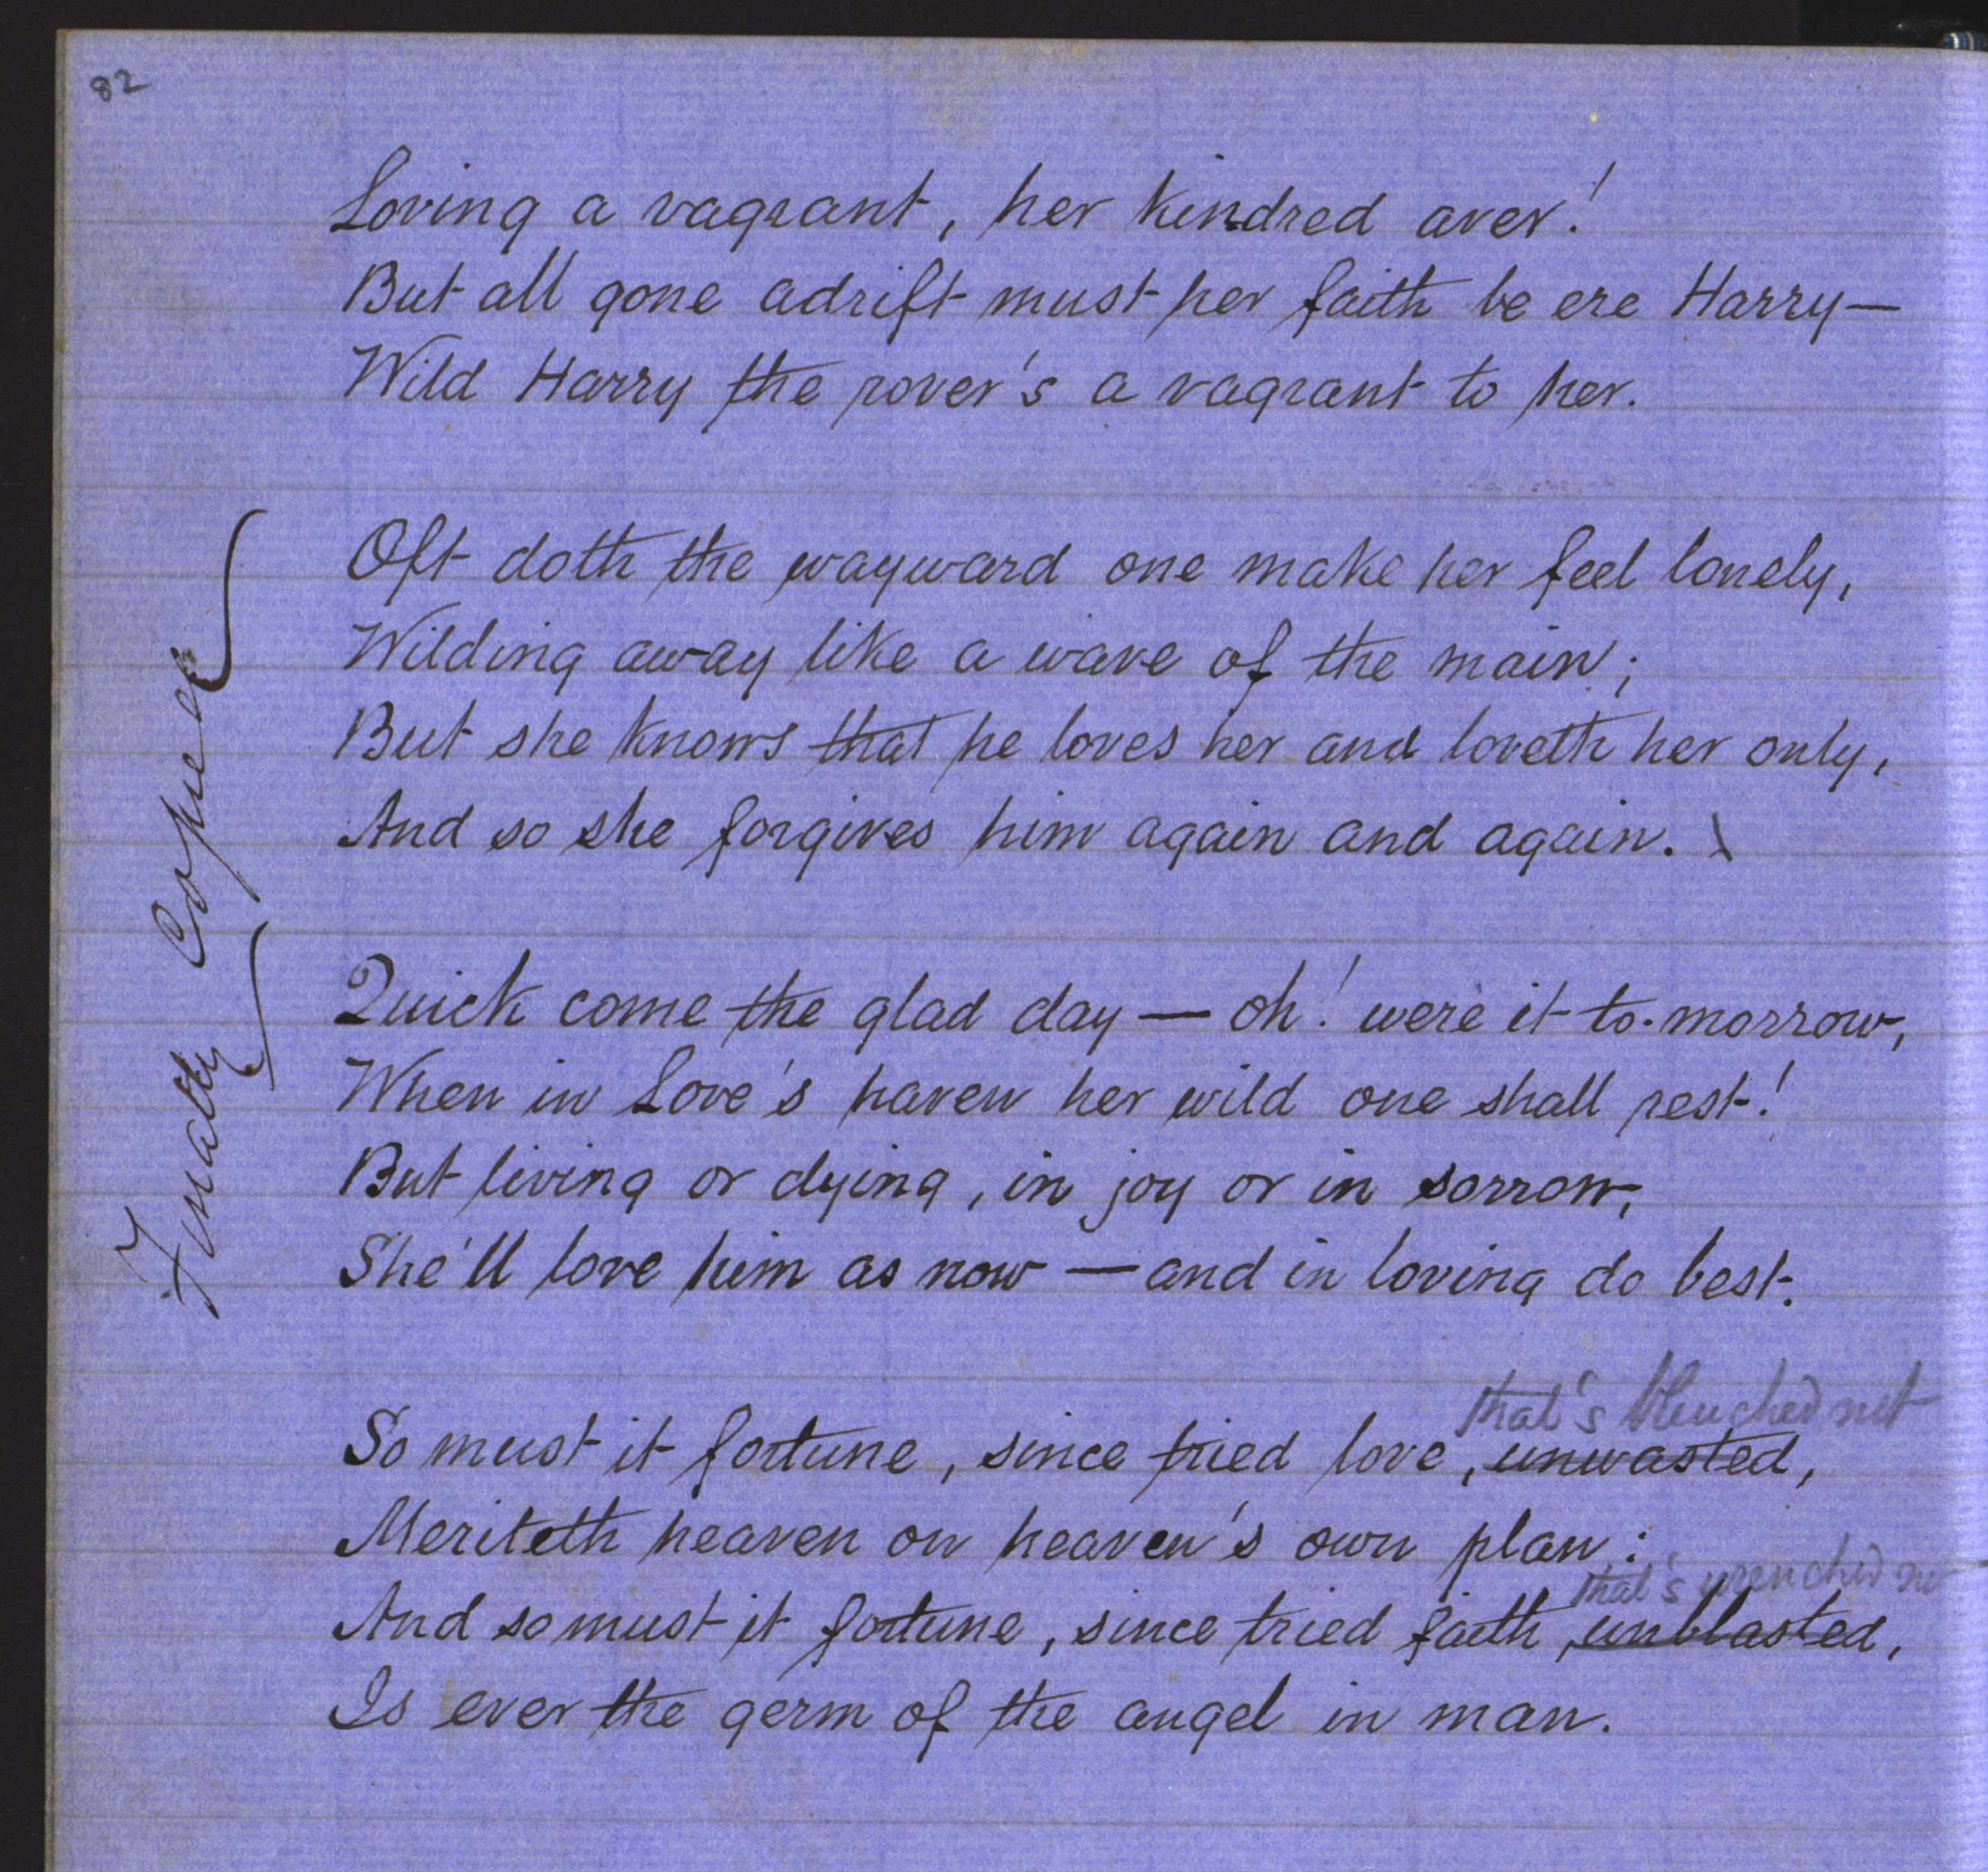 82
Loving a vagrant, her kindred aver!
But all gone adrift must her faith be ere Harry—
Wild Harry the rover's a vagrant to her.
Oft doth the wayward one make her feel lonely,
Wilding away like a wave of the main;
But she knows that he loves her and loveth her only,
And so she forgives him again and again. \
Finally Copied
Quick come the glad day — oh! were it to-morrow,
When in Love's haven her wild one shall rest!
But living or dying, in joy or in sorrow,
She'll love him as now — and in loving do best.
that's blenched not
So must it fortune, since tried love, unwasted,
Meriteth heaven on heaven's own plan:
that's wrenched
And so must it fortune, since tried faith, unblasted,
Is ever the germ of the angel in man.